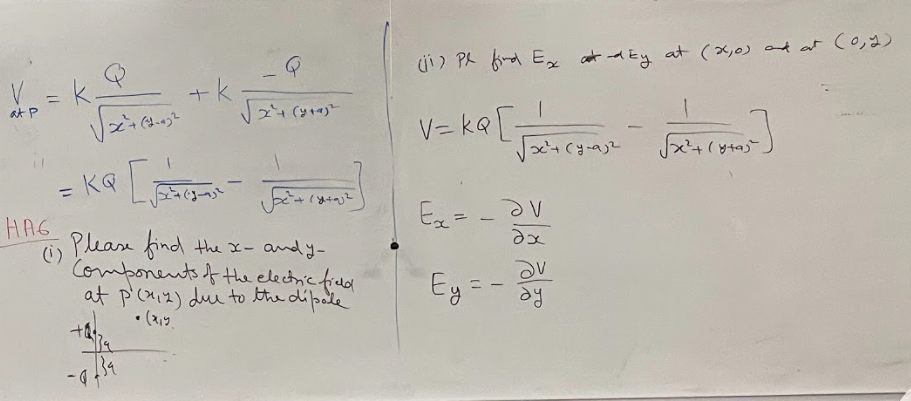 V at P = K Q/√(x²+(y-a)²) + K -Q/√(x²+(y+a)²)
= KQ [ 1/√(x²+(y-a)²) - 1/√(x²+(y+a)²) ]
HA6
(i) Please find the x- and y-
Components of the electric field
at P(x,y) due to the dipole
• (x,y
+Q }a
-Q }a
(ii) Pl find Ex and Ey at (x,0) and at (0,y)
V = KQ [ 1/√(x²+(y-a)²) - 1/√(x²+(y+a)²) ]
Ex = - ∂V/∂x
Ey = - ∂V/∂y